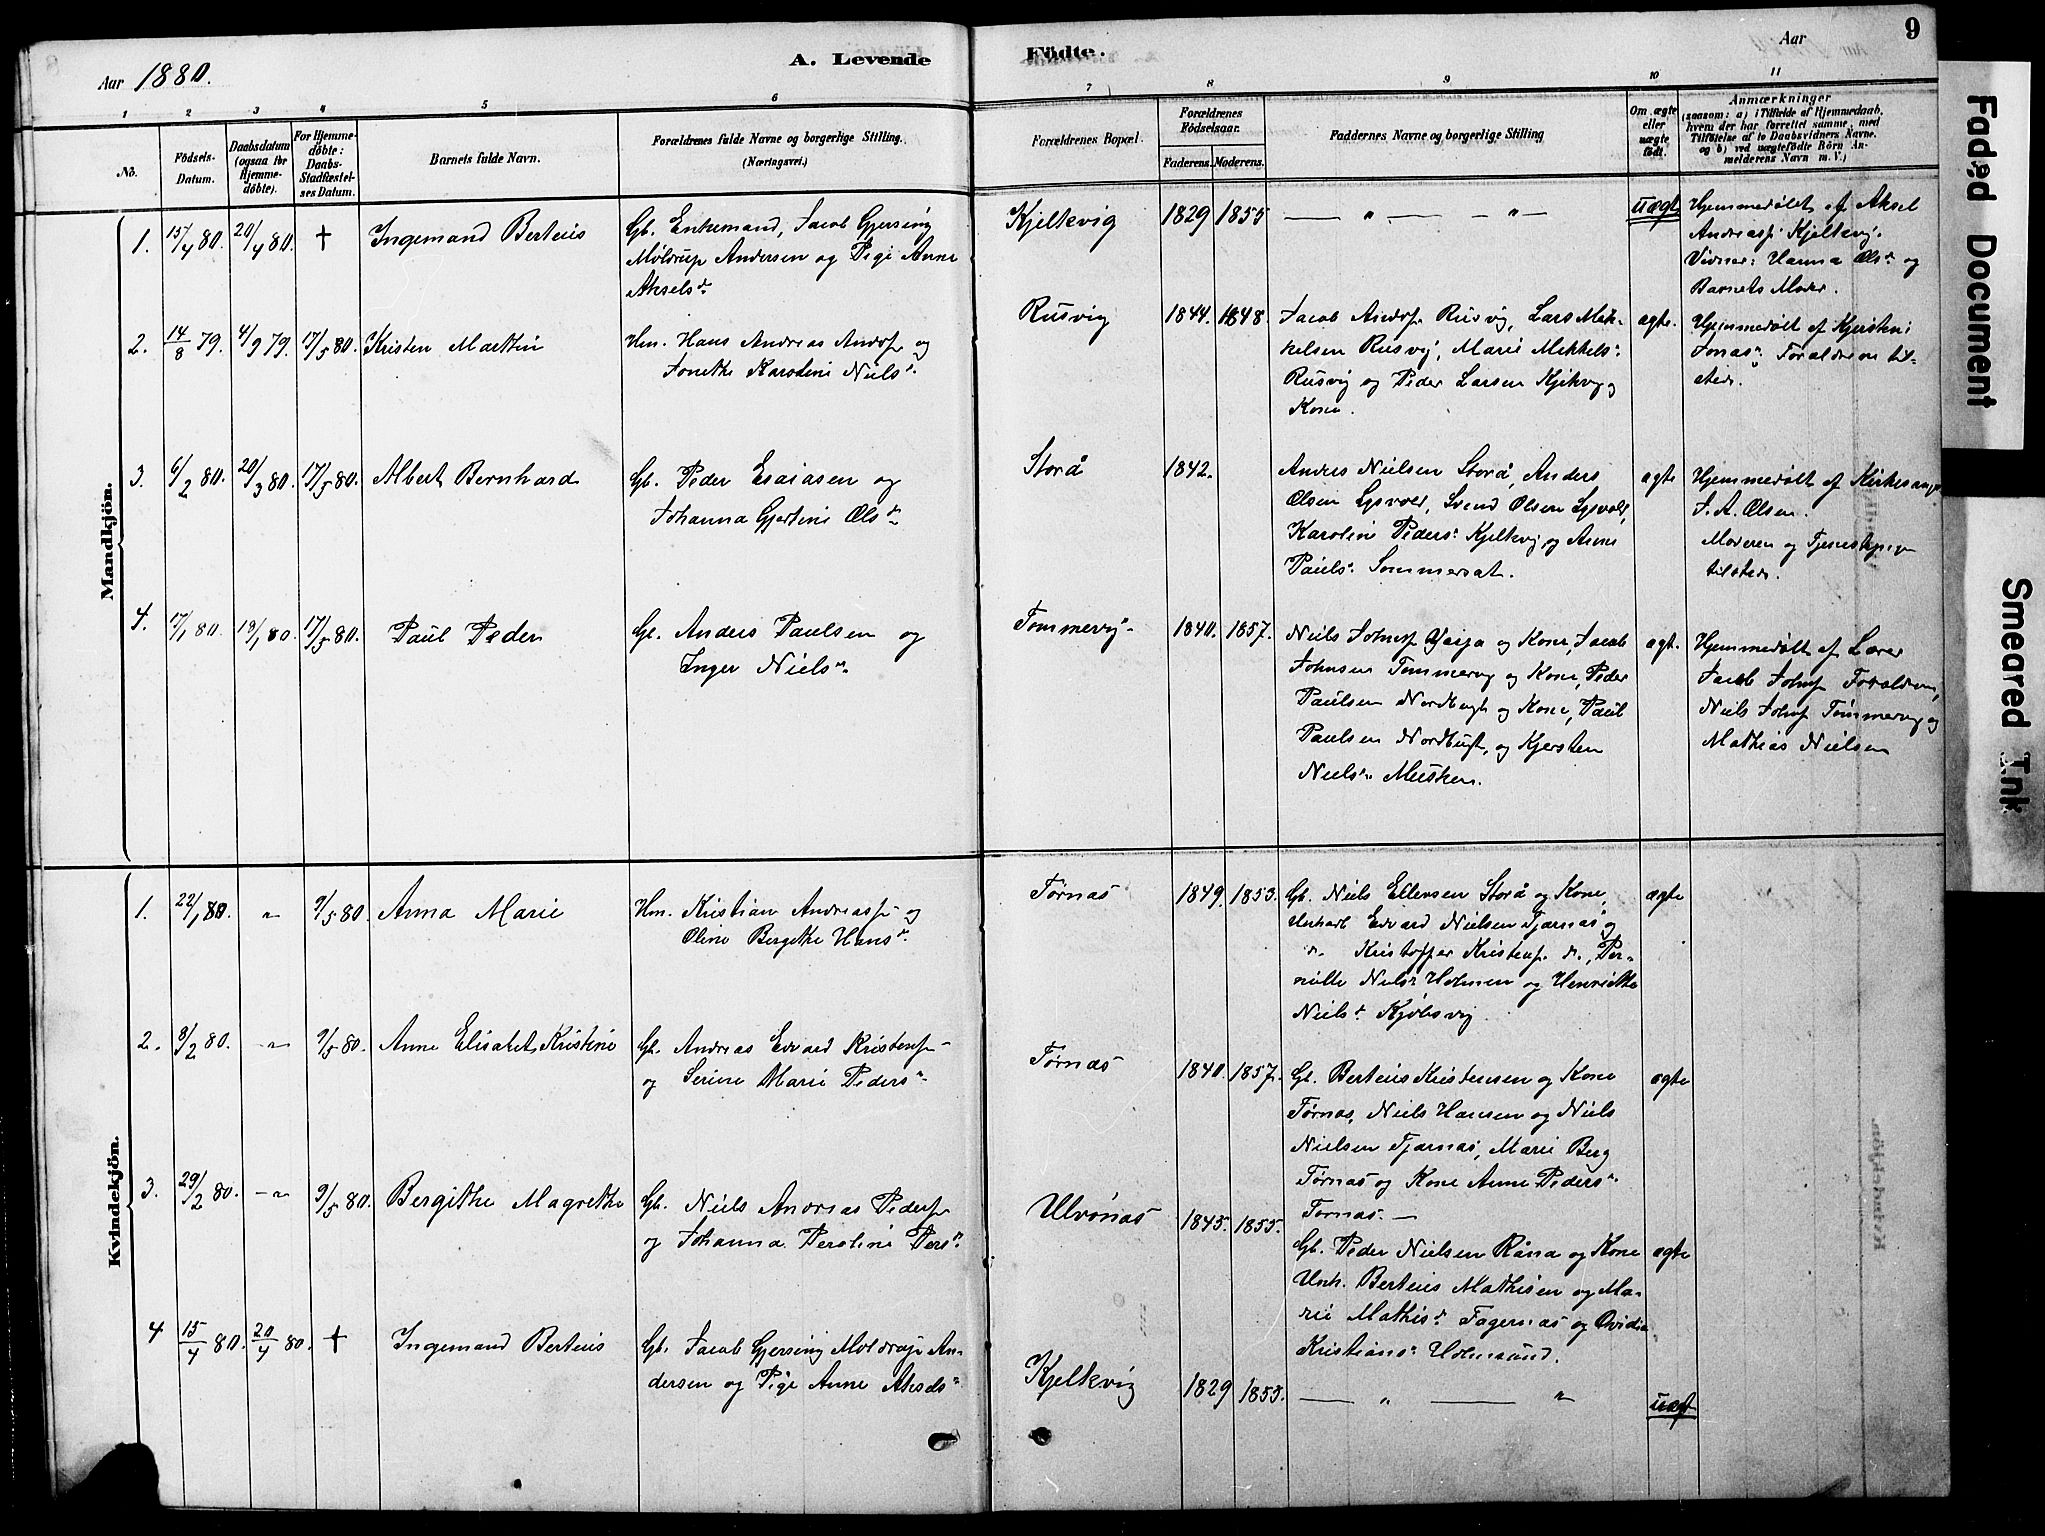 9
Aar 1880.
A. Levende Födte.
Aar
1 2 3 4 5 6 7 8 9 10 11
No.
Födsels-
Datum.
Daabsdatum
(ogsaa for
Hjemme-
döbte).
For Hjemme-
döbte:
Daabs-
Stadfæstel-
ses Datum.
Barnets fulde Navn.
Forældrenes fulde Navne og borgerlige Stilling.
(Næringsvei.)
Forældrenes Bopæl.
Forældrenes
Födselsaar.
Faderens. Moderens.
Faddernes Navne og borgerlige Stilling
Om ægte
eller
uægte
födt.
Anmærkninger
(saasom: a) i Tilfælde af Hjemmedaab,
hvem der har forrettet samme, med
Tilföielse af to Daabsvidners Navne,
og b) ved uægtefödte Börn An-
melderens Navn m. V.)
Mandkjön.
1. 15/4 80. 20/4 80. † Ingemand Berteus
Gb. Enkemand, Jacob Gjersing
Möldrup Andersen og Pige Anne
Akselsdr.
Kjelkvig 1829 1855 — „ — — „ — uægt
Hjemmedøbt af Aksel
Andreass. Kjelkvig.
Vidner: Hanna Olsdr. og
Barnets Moder.
2. 14/8 79. 4/9 79. 17/5 80. Kristen Martin
Hm. Hans Andreas Anders. og
Jonette Karoline Nielsdr.
Rusvig 1844. 1848.
Jacob Anders. Rusvig, Lars Mik-
kelsen Rusvig, Marie Mikkelsdr.
Rusvig og Peder Larsen Kjelkvig
Kone.
ægte.
Hjemmedøbt af Kjerstine
Jonasdr. Forældrene til-
stede.
3. 6/2 80. 20/3 80. 17/5 80. Albert Bernhard
Gb. Peder Esaiasen og
Johanna Gjertine Olsdr.
Storå 1842.
Andres Nielsen Storå, Anders
Olsen Lysvold, Svend Olsen Lysvold,
Karoline Pedersdr. Kjelkvig og Anne
Paulsdr. Sommerset.
ægte
Hjemmedøbt af Kirkesanger
J. A. Olsen.
Moderen og Tjenestepige
tilstede.
4. 17/1 80. 19/1 80. 17/5 80. Paul Peder
Gb. Anders Paulsen og
Inger Nielsdr.
Tømmervig 1840. 1857.
Niels Johns. og Kone, Jacob
Johnsen Tømmervig og Kone, Peder
Paulsen Nordbugt og Kone, Paul
Paulsen Nordbugt, og Kjersten
Nielsdr. Musken.
ægt.
Hjemmedøbt af Lærer
Jacob Johns. Forældrene,
Niels Johns. Tömmervig og
Mathias Nielsen
Kvindekjön.
1. 22/1 80. „ 9/5 80. Anna Marie
Hm. Kristian Andreass. og
Oline Bergitte Hansdr.
Tørnæs 1849. 1853.
Gb. Niels Ellensen Storå og Kone,
Ungkarl Edvard Nielsen Tjærnæs og
do. Kristoffer Kristens. do., Per-
nille Nielsdr. Holmen og Henriette
Nielsdr. Kjøbsvig.
ægte
2. 8/2 80. — „ 9/5 80. Anne Elisabet Kristine
Gb. Andreas Edvard Kristens.
og Serine Marie Pedersdr.
Tørnæs 1840. 1857.
Gb. Berteus Kristensen og Kone
Tørnæs, Niels Hansen og Niels
Nielsen Tjærnæs, Marie Berg
Tørnæs og Kone Anne Pedersdr.
Tørnæs. —
ægte
3. 29/2 80. — „ 9/5 80. Bergithe Magrethe
Gb. Niels Andreas Peders.
og Johanna Peroline Persdr.
Ulvønæs 1845. 1855.
Gb. Peder Nielsen Råna og Kone
Unk. Berteus Mathisen og Ma-
rie Mathisdr. Fagernæs og Ovidia
Kristiansdr. Holmsund.
ægte
4 15/4 80. 20/4 80. † Ingemand Berteus
Gb. Jacob Gjersing Moldrup An-
dersen og Pige Anne Akselsdr.
Kjelkvig 1829 1853. — „ — „ uægt
Faded Document
Smeared Ink